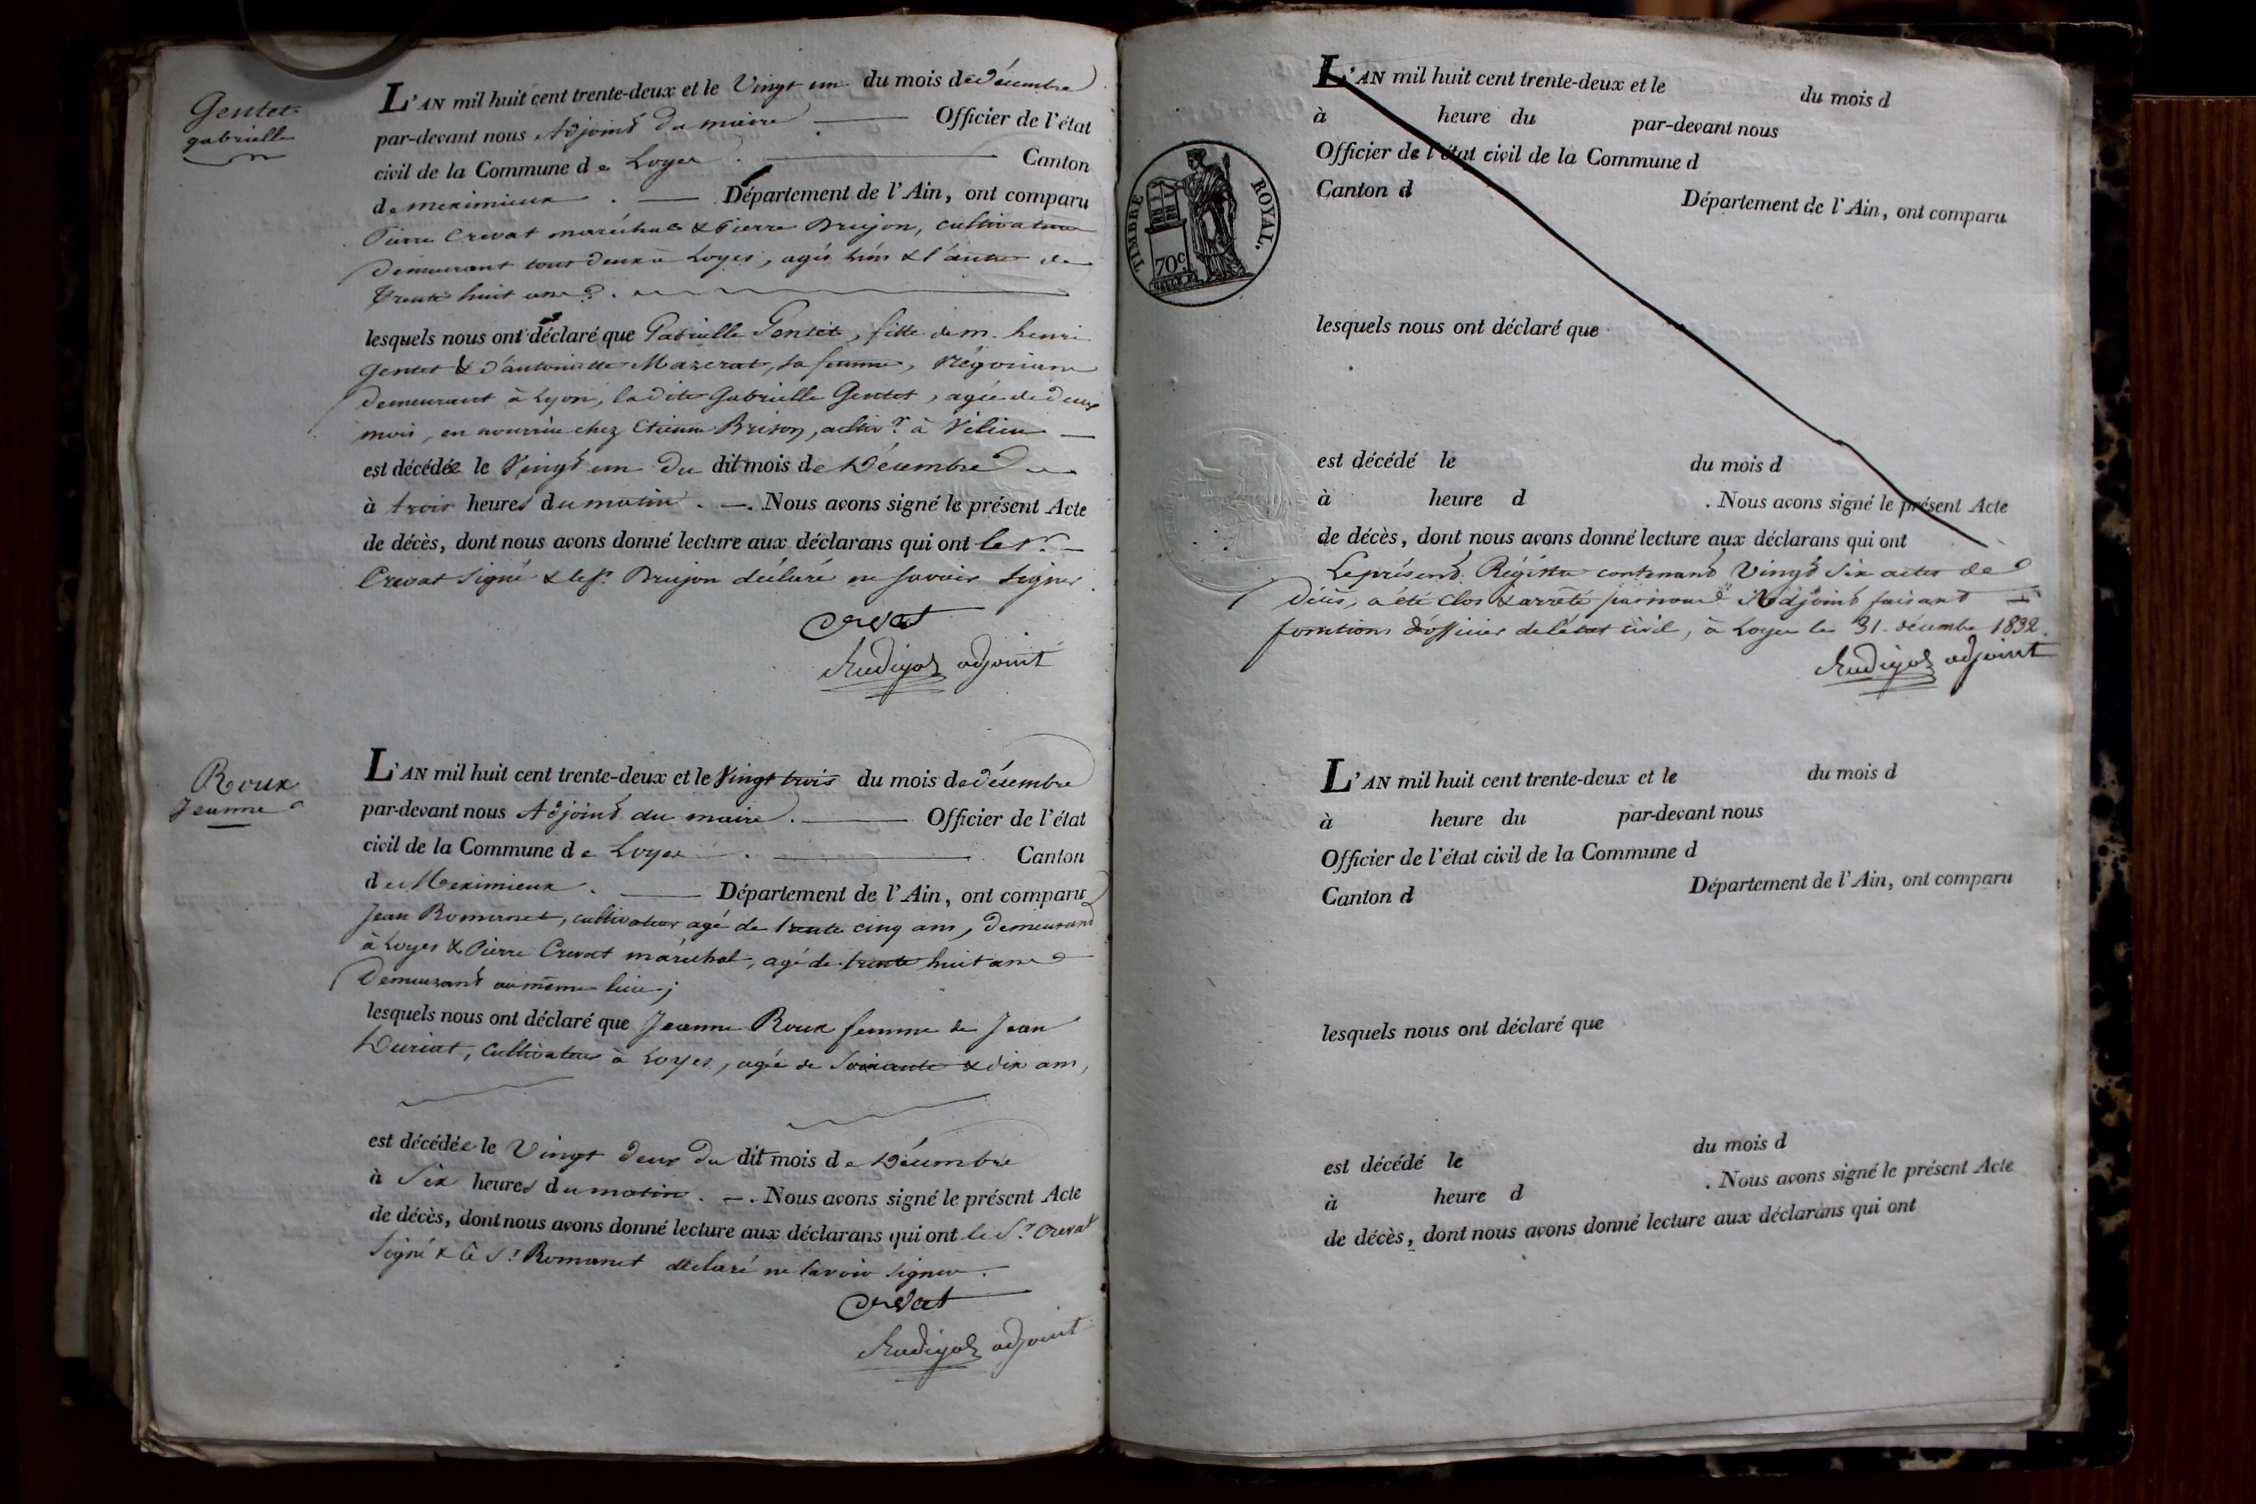 Gentet
gabrielle
L'AN mil huit cent trente-deux et le Vingt un du mois de décembre
par-devant nous Adjoint du maire Officier de l'état
civil de la Commune de Loyes Canton
de meximieux Département de l'Ain, ont comparu
Pierre Crevat maréchal & Pierre Brujon, cultivateur
demeurant tous deux à Loyes, agés l'un & l'autre de
trente huit ans.
lesquels nous ont déclaré que Gabrielle Gentet, fille de m. henri
Gentet & d'antoinette Mazerat, sa femme, Négociant
demeurant à Lyon, ladite Gabrielle Gentet, agée de deux
mois, en nourrice chez Etienne Brison, cultivr. à Vilieu
est décédée le Vingt un du dit mois de Décembre
à trois heures du matin. Nous avons signé le présent Acte
de décès, dont nous avons donné lecture aux déclarans qui ont le Sr.
Crevat Signé & le Sr. Brujon déclaré ne savoir signer.
Crevat
adjoint
Roux
Jeanne
L'AN mil huit cent trente-deux et le Vingt trois du mois de décembre
par-devant nous Adjoint du maire. Officier de l'état
civil de la Commune de Loyes. Canton
de Meximieux. Département de l'Ain, ont comparu
Jean Romanet, cultivateur agé de trente cinq ans, demeurant
à Loyes & Pierre Crevat maréchal, agé de trente huit ans
Demeurant au même lieu;
lesquels nous ont déclaré que Jeanne Roux femme de Jean
Duriat, Cultivateur à Loyes, agée de Soixante & dix ans,
est décédée le Vingt deux du dit mois de Décembre
à Six heures du matin. Nous avons signé le présent Acte
de décès, dont nous avons donné lecture aux déclarans qui ont le Sr. Crevat
Signé & le Sr. Romanet déclaré ne savoir signer.
Crevat
adjoint
TIMBRE ROYAL.
70c
L'AN mil huit cent trente-deux et le du mois d
à heure du par-devant nous
Officier de l'état civil de la Commune d
Canton d Département de l'Ain, ont comparu
lesquels nous ont déclaré que
est décédé le du mois d
à heure d . Nous avons signé le présent Acte
de décès, dont nous avons donné lecture aux déclarans qui ont
Le présent Régistre contenant Vingt Six actes de
décès, a été clos & arrêté par nous Adjoint faisant
fonctions d'officier de l'état civil, à Loyes le 31. décembre 1832.
adjoint
L'AN mil huit cent trente-deux et le du mois d
à heure du par-devant nous
Officier de l'état civil de la Commune d
Canton d Département de l'Ain, ont comparu
lesquels nous ont déclaré que
est décédé le du mois d
à heure d . Nous avons signé le présent Acte
de décès, dont nous avons donné lecture aux déclarans qui ont